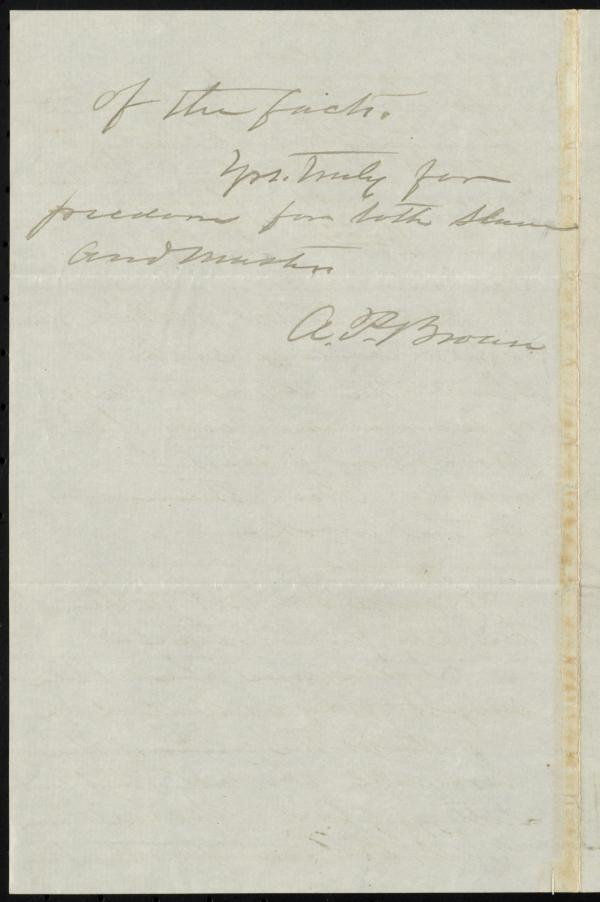 of the facts.
Yrs. truly for
freedom for both slave
and master.
A. P. Brown